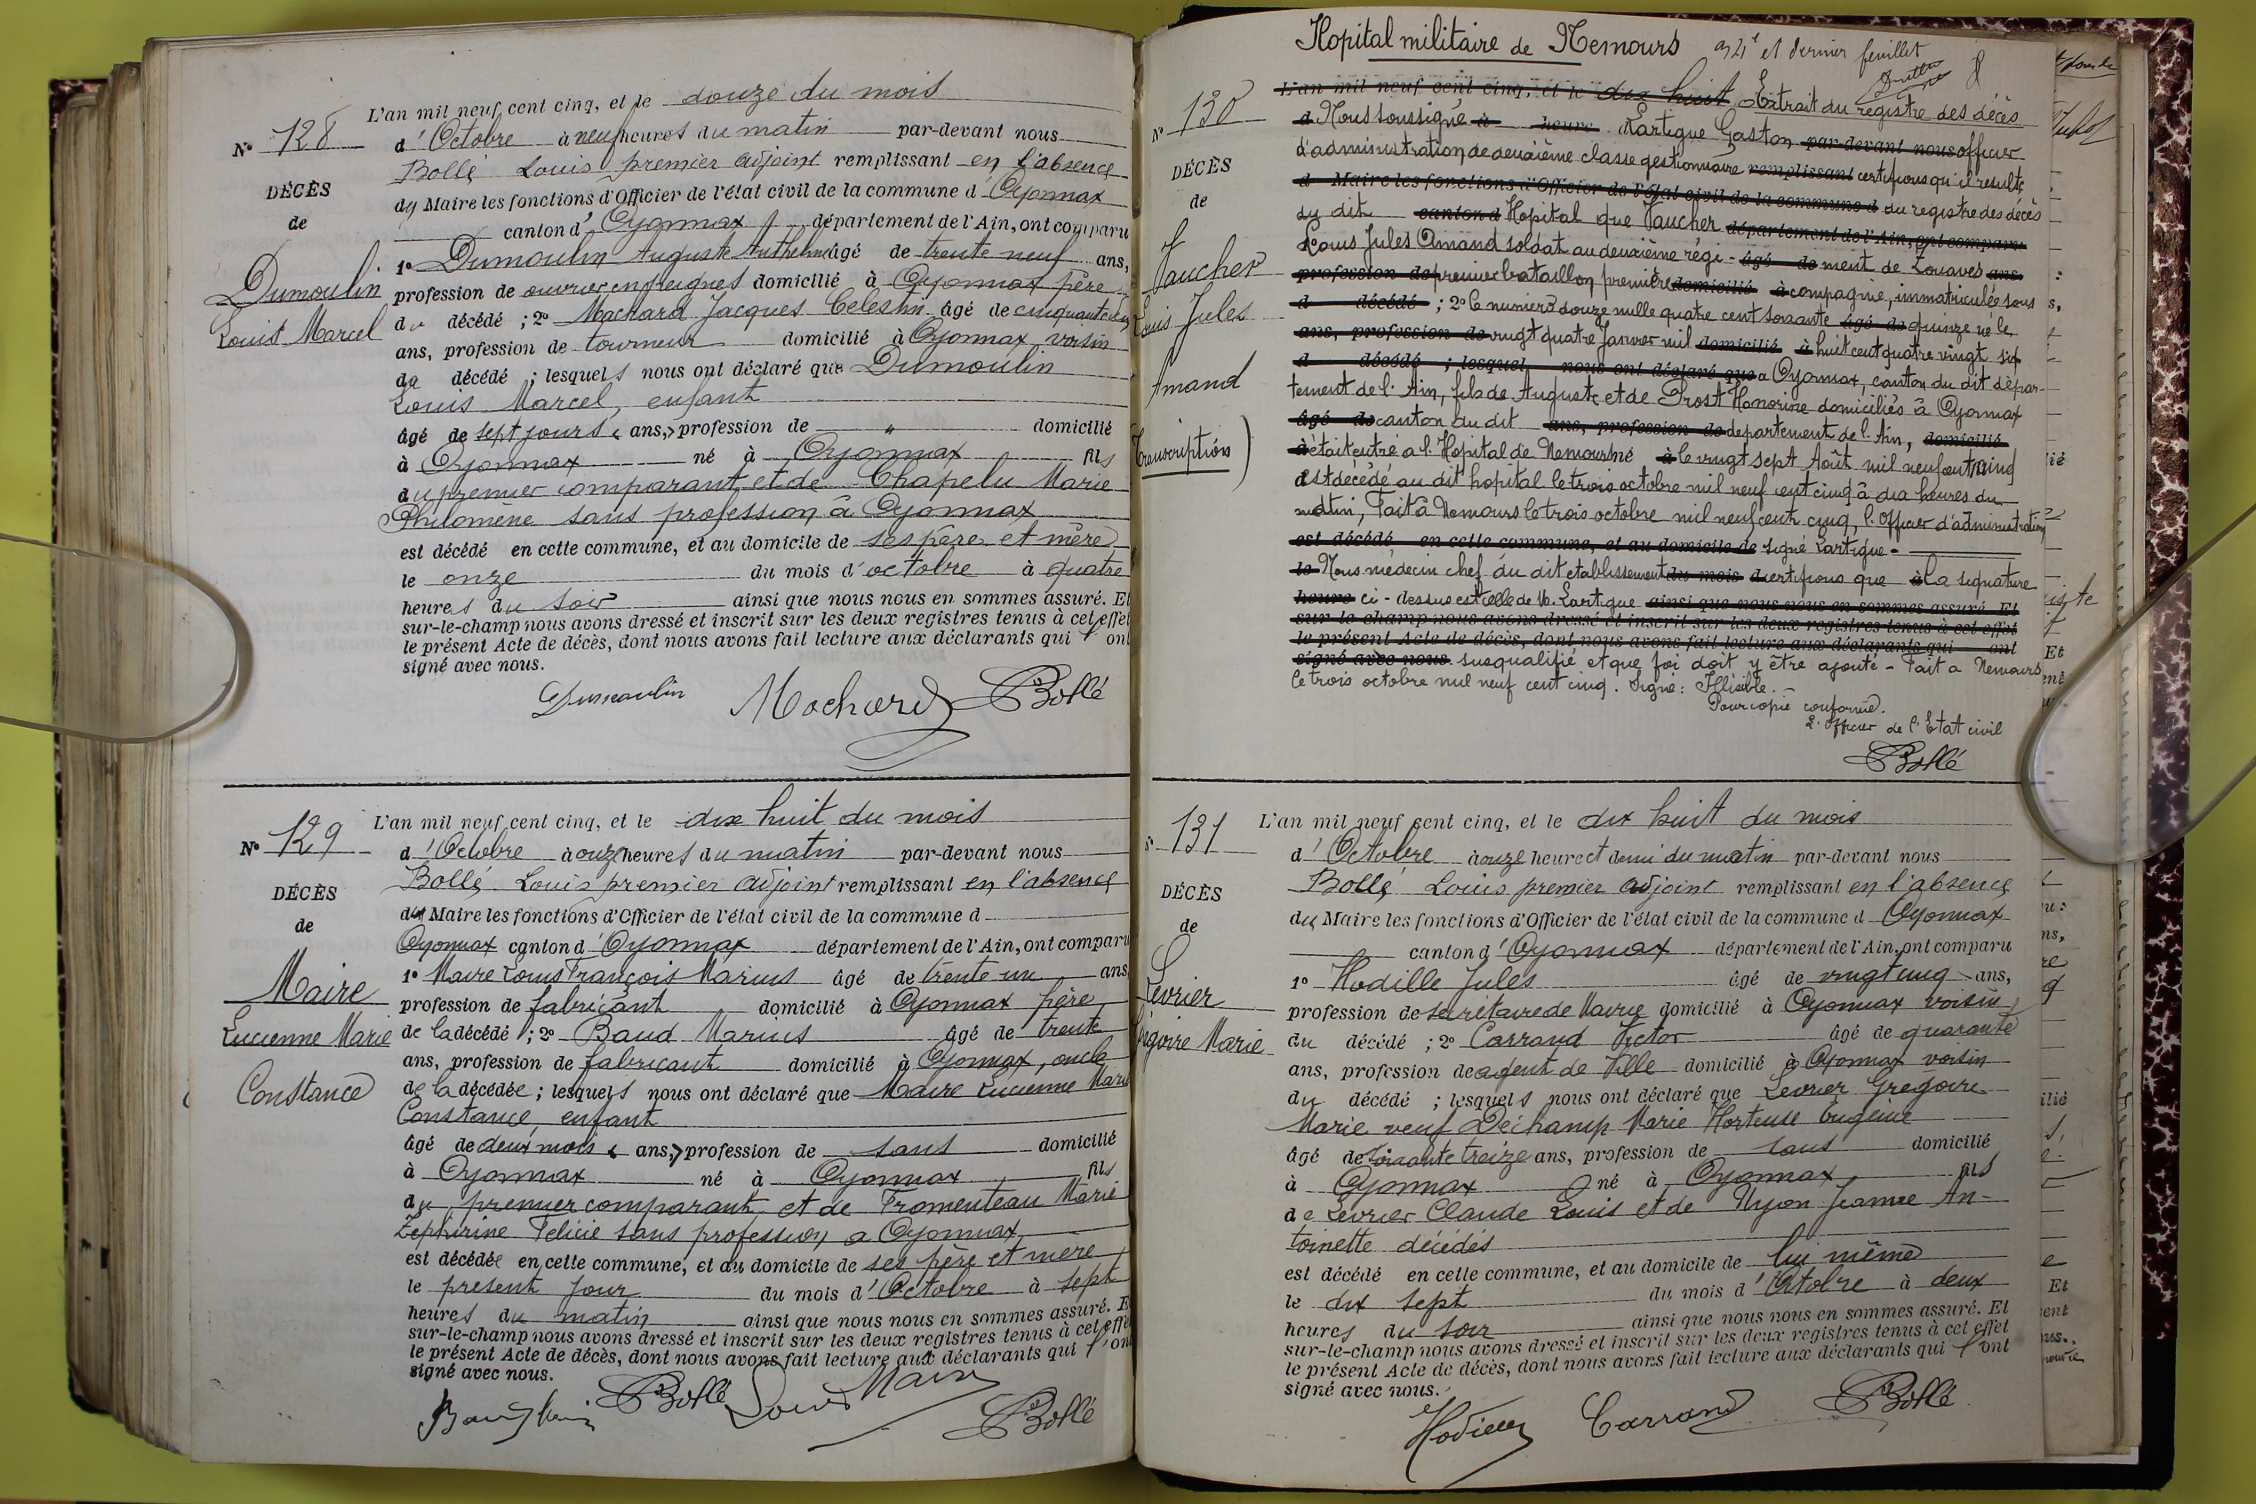 L'an mil neuf cent cinq, et le douze du mois
N° 128
d'Octobre à neuf heures du matin par-devant nous
Bollé Louis premier adjoint remplissant en l'absence
DÉCÈS
du Maire les fonctions d'Officier de l'état civil de la commune d Oyonnax
de
canton d'Oyonnax département de l'Ain, ont comparu
1° Dumoulin Auguste Anthelme âgé de trente neuf ans,
Dumoulin
profession de ouvrier en peignes domicilié à Oyonnax père
Louis Marcel
du décédé ; 2° Machard Jacques Célestin âgé de cinquante
ans, profession de tourneur domicilié à Oyonnax, voisin
du décédé ; lesquels nous ont déclaré que Dumoulin
Louis Marcel, enfant
âgé de sept jours < ans, > profession de " domicilié
à Oyonnax né à Oyonnax fils
du premier comparant et de Chapelu Marie
Philomène sans profession à Oyonnax
est décédé en cette commune, et au domicile de ses père et mère
le onze du mois d'octobre à quatre
heures du soir ainsi que nous nous en sommes assuré. Et
sur-le-champ nous avons dressé et inscrit sur les deux registres tenus à cet effet
le présent Acte de décès, dont nous avons fait lecture aux déclarants qui l'ont
signé avec nous.
Dumoulin Machard Bollé
L'an mil neuf cent cinq, et le dix huit du mois
N° 129
d'Octobre à onze heures du matin par-devant nous
Bollé Louis premier adjoint remplissant en l'absence
DÉCÈS
du Maire les fonctions d'Officier de l'état civil de la commune d
de
Oyonnax canton d'Oyonnax département de l'Ain, ont comparu
1° Maire Louis François Marius âgé de trente un ans
Maire
profession de fabricant domicilié à Oyonnax père
Lucienne Marie
de la décédé ; 2° Baud Marius âgé de trente
ans, profession de fabricant domicilié à Oyonnax, oncle
Constance
de la décédée ; lesquels nous ont déclaré que Maire Lucienne Marie
Constance, enfant
âgé de deux mois < ans, > profession de sans domicilié
à Oyonnax né à Oyonnax fils
du premier comparant et de Fromenteau Marie
Zéphirine Félicie sans profession a Oyonnax
est décédée en cette commune, et au domicile de ses père et mère
le présent jour du mois d'Octobre à sept
heures du matin ainsi que nous nous en sommes assuré. Et
sur-le-champ nous avons dressé et inscrit sur les deux registres tenus à cet effet
le présent Acte de décès, dont nous avons fait lecture aux déclarants qui l'ont
signé avec nous.
Bollé Louis Maire
Bollé
Hopital militaire de Nemours et dernier feuillet
L'an mil neuf cent cinq, et le dix huit Extrait du registre des décès
N° 130
d Nous soussigné à heure Lartigue Gaston par-devant nous officier
d'administration de deuxième classe gestionnaire remplissant certifions qu'il résulte
DÉCÈS
d Maire les fonctions d'Officier de l'état civil de la commune d du registre des décès
de
du dit canton d Hopital que Vaucher département de l'Ain, ont comparu
Louis Jules Amand soldat au deuxième régi- âgé de ment de Zouaves ans
Vaucher
profession de premier bataillon première domicilié à compagnie, immatriculé sous
Louis Jules
d décédé ; 2° le numéro douze mille quatre cent soixante âgé de quinze né le
ans, profession de vingt quatre Janvier mil domicilié à huit cent quatre vingt
Amand
d décédé ; lesquel nous ont déclaré que a Oyonnax, canton du dit dépar-
tement de l'Ain, fils de Auguste et de Prost Honorine domiciliés à Oyonnax
âgé de canton du dit ans, profession de departement de l'Ain, domicilié
(Transcription)
à était entré a l'Hopital de Nemours né à le vingt sept Août mil neuf cent cinq
d est décédé au dit hopital le trois octobre mil neuf cent cinq à dix heures du
matin, Fait à Nemours le trois octobre mil neuf cent cinq, l'Officier d'administration
est décédé en cette commune, et au domicile de signé Lartigue -
le Nous médecin chef du dit etablissement du mois d certifions que à la signature
heure ci-dessus est celle de M. Lartigue ainsi que nous nous en sommes assuré. Et
sur-le-champ nous avons dressé et inscrit sur les deux registres tenus à cet effet
le présent Acte de décès, dont nous avons fait lecture aux déclarants qui ont
signé avec nous. susqualifié et que foi doit y être ajouté - Fait a Nemours
le trois octobre mil neuf cent cinq. Signé : Illisible. -
Pour copie conforme.
L'officier de l'Etat civil
Bollé
L'an mil neuf cent cinq, et le dix huit du mois
N° 131
d'Octobre à onze heure et demi du matin par-devant nous
Bollé Louis premier adjoint remplissant en l'absence
DÉCÈS
du Maire les fonctions d'Officier de l'état civil de la commune d Oyonnax
de
canton d'Oyonnax département de l'Ain, ont comparu
1° Hodille Jules âgé de vingt cinq ans,
Levrier
profession de secrétaire de Mairie domicilié à Oyonnax voisin
Grégoire Marie
du décédé ; 2° Carrand Victor âgé de quarante
ans, profession de agent de Ville domicilié à Oyonnax voisin
du décédé ; lesquels nous ont déclaré que Levrier Grégoire
Marie veuf Déchamp Marie Hortense Eugénie
âgé de soixante treize ans, profession de sans domicilié
à Oyonnax né à Oyonnax fils
de Levrier Claude Louis et de Nyon Jeanne An-
toinette décédés
est décédé en cette commune, et au domicile de lui même
le dix sept du mois d'Octobre à deux
heures du soir ainsi que nous nous en sommes assuré. Et
sur-le-champ nous avons dressé et inscrit sur les deux registres tenus à cet effet
le présent Acte de décès, dont nous avons fait lecture aux déclarants qui l'ont
signé avec nous.
Hodille Carrand Bollé